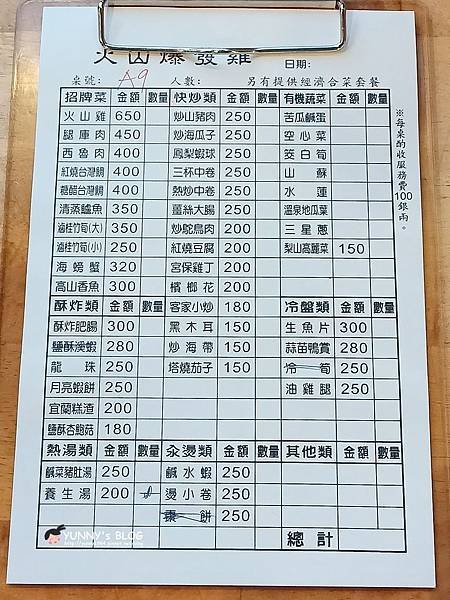 火山爆發雞
日期:
桌號: A9 人數: 另有提供經濟合菜套餐
招牌菜 金額 數量 快炒類 金額 數量 有機蔬菜 金額 數量
火山雞 650 炒山豬肉 250 苦瓜鹹蛋
腿庫肉 450 炒海瓜子 250 空心菜
西魯肉 400 鳳梨蝦球 250 筊白筍
紅燒台灣鯛 400 三杯中卷 250 山蘇
糖醋台灣鯛 400 熱炒中卷 250 水蓮
清蒸鱸魚 350 薑絲大腸 250 溫泉地瓜葉
滷桂竹筍(大) 350 炒鴕鳥肉 200 三星蔥
滷桂竹筍(小) 250 紅燒豆腐 200 梨山高麗菜 150
海螃蟹 320 宮保雞丁 200
高山香魚 300 檳榔花 200
酥炸類 金額 數量 客家小炒 180 冷盤類 金額 數量
酥炸肥腸 300 黑木耳 150 生魚片 300
鹽酥溪蝦 280 炒海帶 150 蒜苗鴨賞 280
龍珠 250 塔燒茄子 150 冷筍 250
月亮蝦餅 250 油雞腿 250
宜蘭糕渣 200
鹽酥杏鮑菇 180
熱湯類 金額 數量 汆燙類 金額 數量 其他類 金額 數量
鹹菜豬肚湯 250 鹹水蝦 250
養生湯 200 燙小卷 250
棗餅 250
總計
※每桌酌收服務費100銀兩。
YUNNY's BLOG